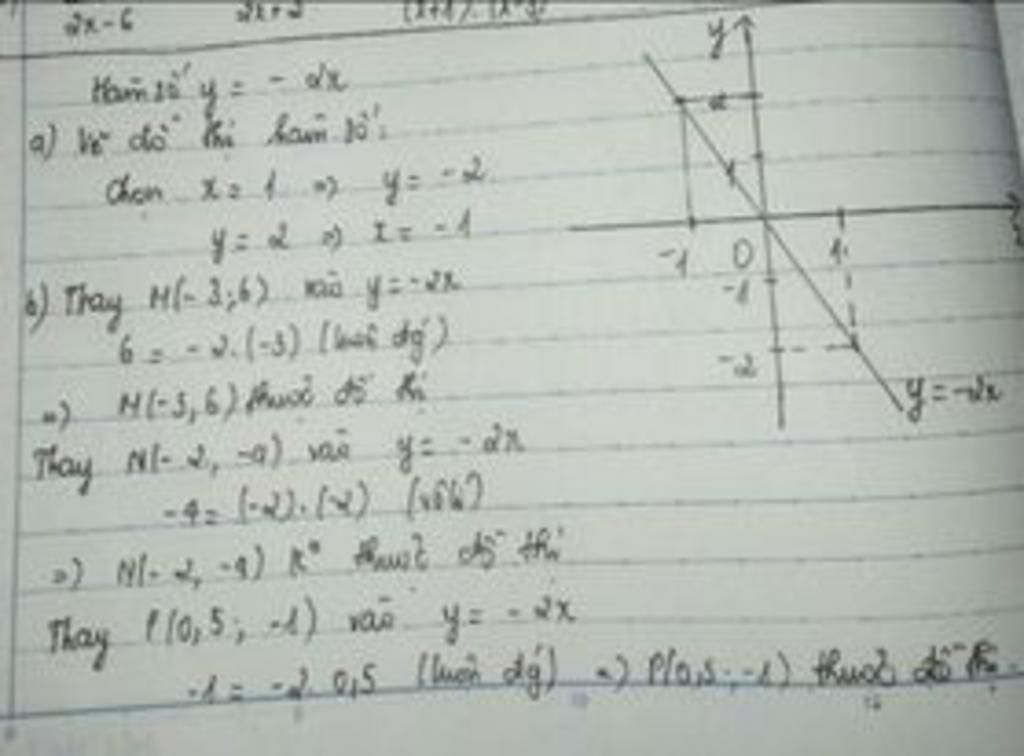 2x-6 2x+2 (x+1).(x-3)
Hàm số y = - 2x
a) Vẽ đồ thị hàm số:
Chọn x = 1 => y = -2
y = 2 => x = -1
b) Thay M(-3;6) vào y = -2x
6 = -2.(-3) (luôn đg)
=> M(-3,6) thuộc đồ thị
Thay N(-2, -4) vào y = -2x
-4 = (-2).(-2) (vô lí)
=> N(-2, -4) k° thuộc đồ thị
Thay P(0,5; -1) vào y = -2x
-1 = -2.0,5 (luôn đg) => P(0,5; -1) thuộc đồ thị.
y
2
1
-1 0 1
-1
-2
y = -2x